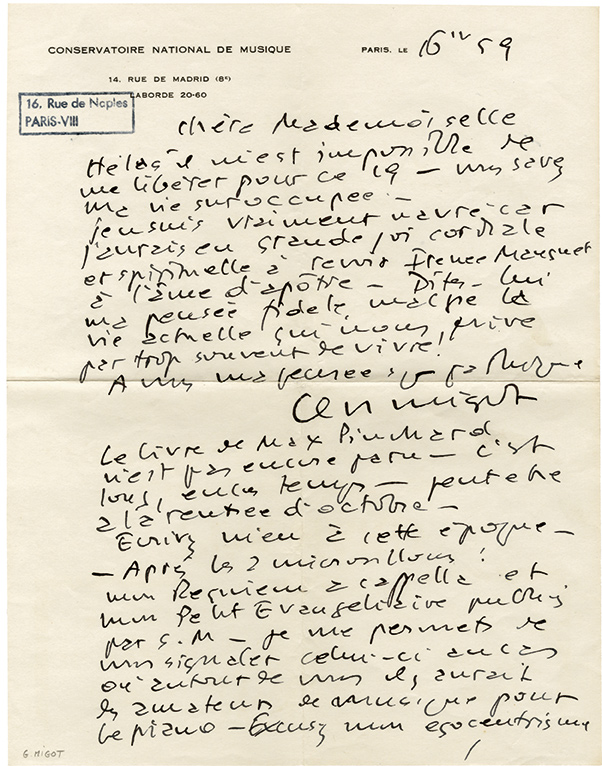 CONSERVATOIRE NATIONAL DE MUSIQUE
PARIS, LE 16 IV 59
14, RUE DE MADRID (8e)
LABORDE 20-60
16, Rue de Naples
PARIS-VIII
Chère Mademoiselle
Hélas il m'est impossible de
me libérer pour ce 19 — vous savez
ma vie suroccupée. —
j'en suis vraiment navré car
j'aurais eu grande joie cordiale
et spirituelle à revoir
à l'âme d'apôtre — Dites-lui
ma pensée fidèle malgré la
vie actuelle qui nous prive
par trop souvent de vivre !
A vous ma pensée sympathique
Le livre de Max Pinchard
n'est pas encore paru — c'est
long, en ces temps — peut être
à la rentrée d'octobre —
Ecrivez m'en à cette époque —
— Après les 2 microsillons !
mon Requiem a cappella et
mon Petit Evangéliaire publiés
par S.M — je me permets de
vous signaler celui-ci au cas
où autour de vous il y aurait
des amateurs de musique pour
le piano — Excusez mon egocentrisme
!
G. MIGOT